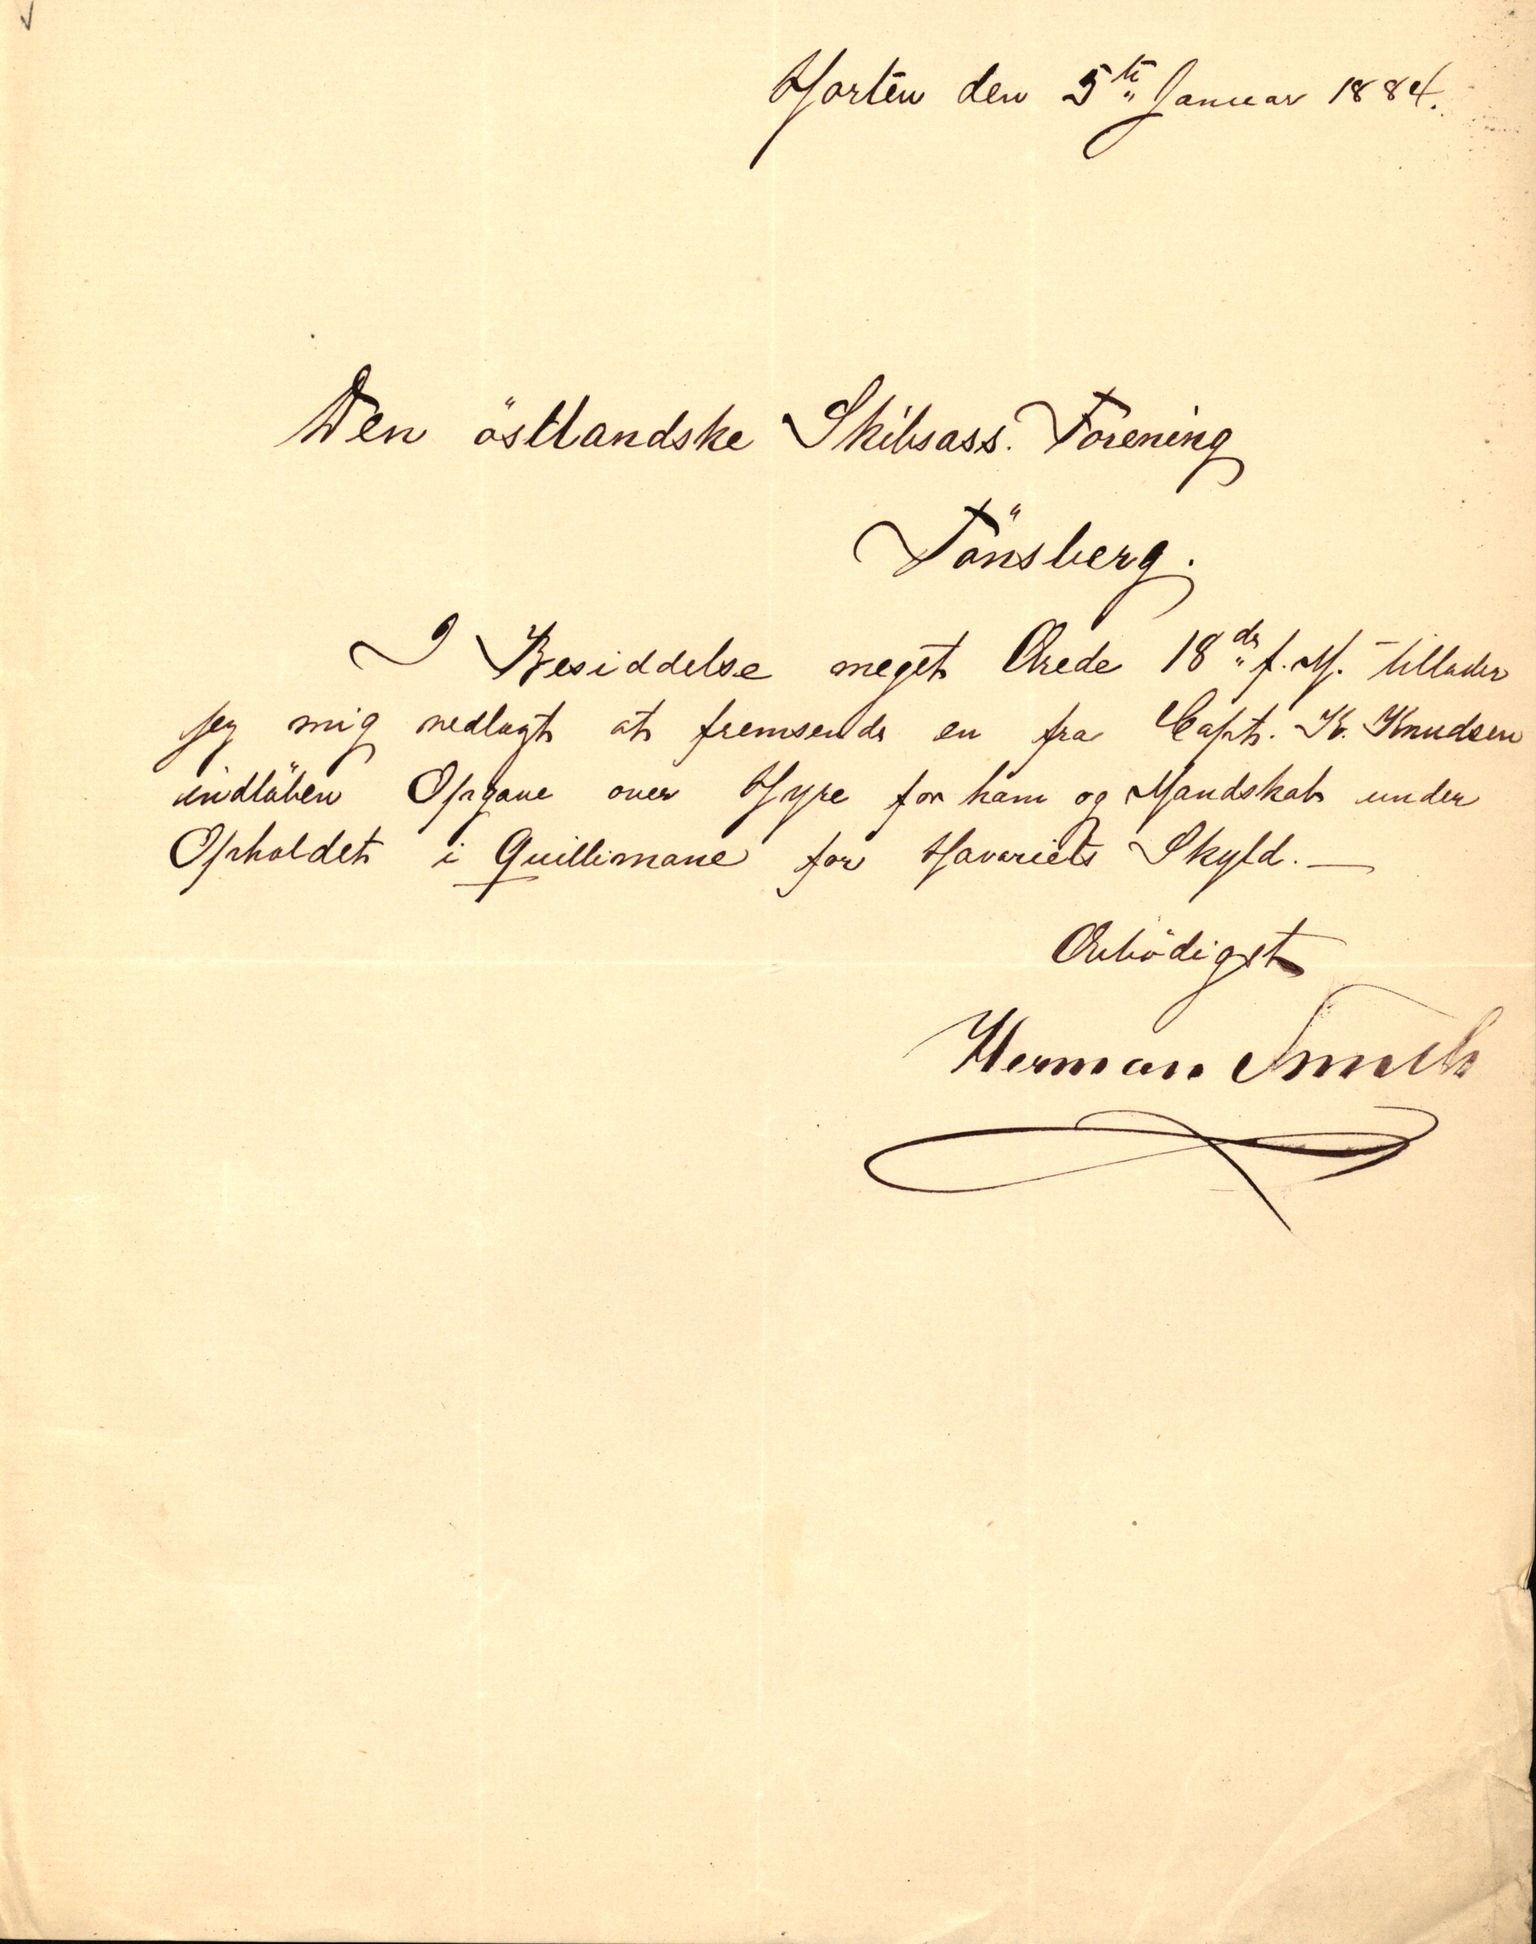 Horten den 5te Januar 1884.
Den östlandske Skibsass. Forening
Tönsberg.
I Besiddelse meget Ærede 18de f. M. tillader
jeg mig vedlagt at fremsende en fra Capt. K. Knudsen
indlöben Opgave over Hyre for ham og Mandskab under
Opholdet i Quillimane for Havariets Skyld. —
Ærbödigst
Herman Smith